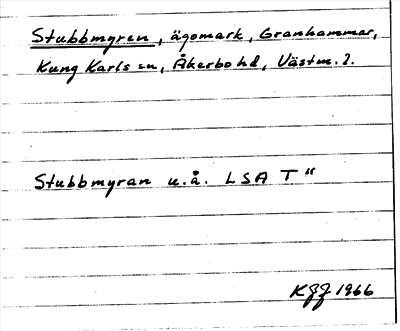 Stubbmyren, ägomark, Granhammar,
Kung Karls sn, Åkerbo hd, Västm. l.
Stubbmyran u.å. LSA T"
KGJ 1966